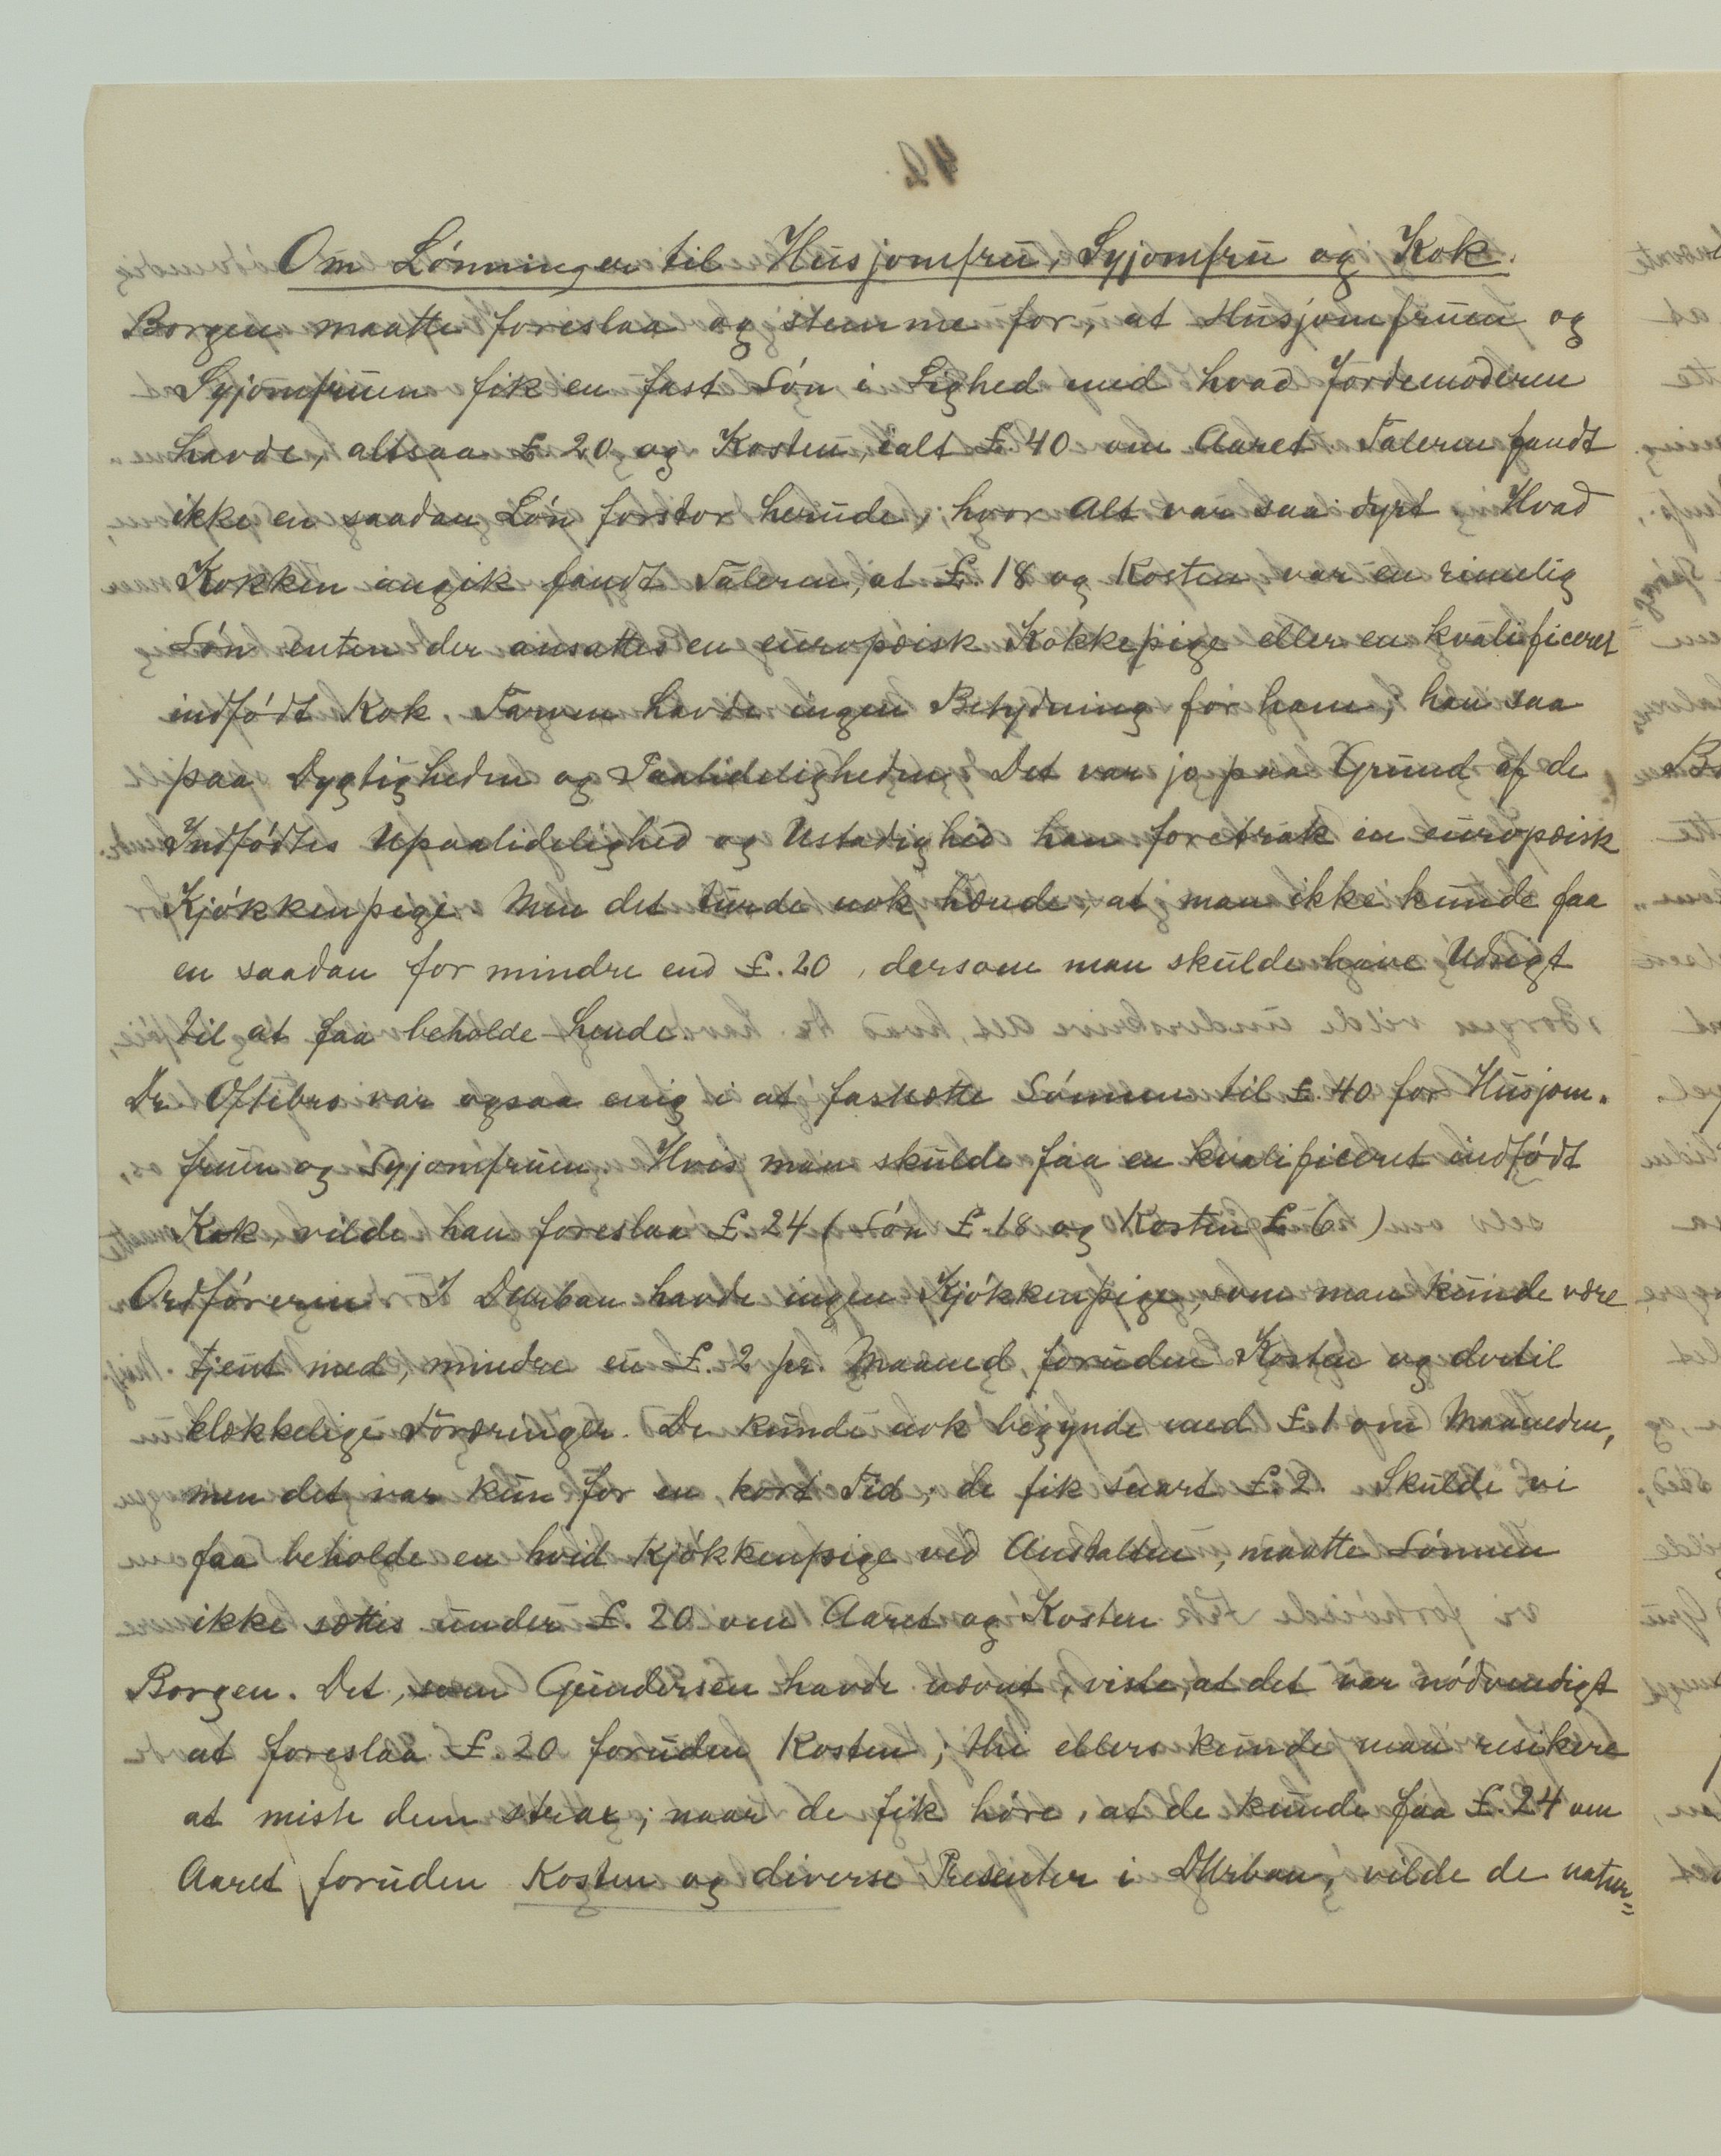 Om Lónninger til Husjomfru, Syjomfru og Kok.
Borgen maatte foreslaa og stemme for, at Husjomfruen og
Syjomfruen fik en fast Lón i Lighed med hvad Jordemoderen
havde, altsaa £. 20 og Kosten, ialt £. 40 om Aaret. Taleren fandt
ikke en saadan Lón forstor herude, hvor Alt var saa dyrt. Hvad
Kokken angik fandt Taleren, at £. 18 og Kosten var en rimelig
Lón enten der ansattes en europæisk Kokkepige eller en kvalificeret
indfódt Kok. Farven havde ingen Betydning for ham, han saa
paa Dygtigheden og Paalideligheden. Det var jo paa Grund af de
Indfódtes Upaalidelighed og Ustadighed han foretrak en europæisk
Kjókkenpige. Men det turde nok hænde, at man ikke kunde faa
en saadan for mindre end £. 20, dersom man skulde have Udsigt
til at faa beholde hende.
Dr. Oftebro var ogsaa enig i at fastsætte Lónnen til £. 40 for Husjom-
fruen og Syjomfruen. Hvis man skulde faa en kvalificeret indfódt
Kok, vilde han foreslaa £. 24 (Lón £. 18 og Kosten £ 6)
Ordfóreren I DUrban havde ingen Kjókkenpige, som man kunde være
tjent med, mindre en £. 2 pr. Maaned foruden Kosten og dertil
klækkelige Foræringer. De kunde nok begynde med £ 1 om Maaneden,
men det var kun for en kort Tid, de fik snart £. 2. Skulde vi
faa beholde en hvid Kjókkenpige ved Anstalten, maatte Lónnen
ikke sættes under £. 20 om Aaret og Kosten
Borgen. Det, som Gundersen havde nævnt, viste, at det var nódvendigt
at foreslaa £. 20 foruden Kosten; thi ellers kunde man risikere
at miste dem strax; naar de fik hóre, at de kunde faa £. 24 om
Aaret foruden Kosten og diverse Presenter i DUrban, vilde de natur=